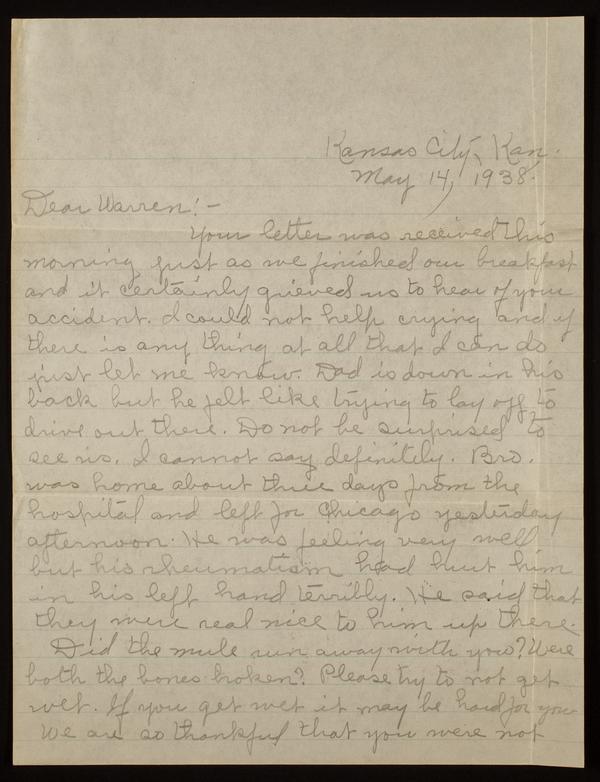 Kansas City, Kan.
May 14, 1938.
Dear Warren:-
Your letter was received this
morning just as we finished our breakfast
and it certainly grieved us to hear of your
accident. I could not help crying and if
there is any thing at all that I can do
just let me know. Dad is down in his
back but he felt like trying to lay off to
drive out there. Do not be surprised to
see us. I cannot say definitely. Bro.
was home about three days from the
hospital and left for Chicago yesterday
afternoon. He was feeling very well
but his rheumatism had hurt him
in his left hand terribly. He said that
they were real nice to him up there.
Did the mule run away with you? Were
both the bones broken? Please try to not get
wet. If you get wet it may be hard for you
We are so thankful that you were not